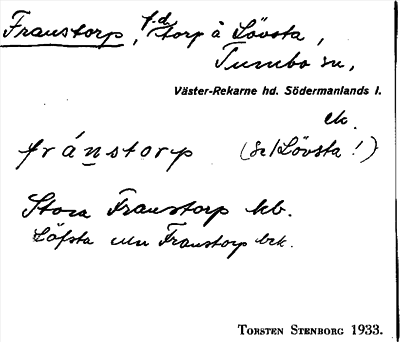 Franstorp, f.d. torp å Lövsta,
Tumbo sn,
Väster-Rekarne hd. Södermanlands l.
ek.
fránstorp (Se/Lövsta!)
Stora Franstorp kb.
Löfsta eller Franstorp bek.
TORSTEN STENBORG 1933.